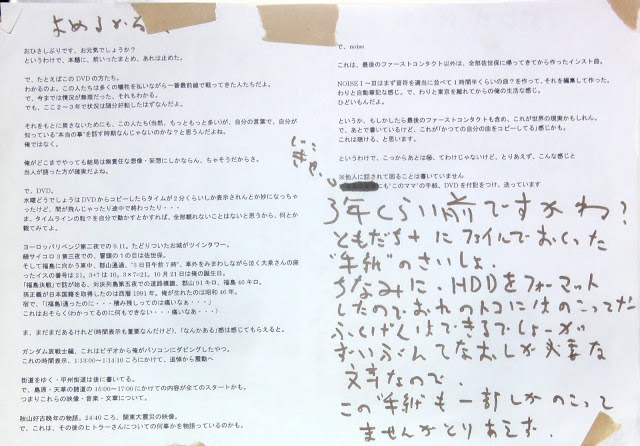 よめるかな
おひさしぶりです、お元気でしょうか？
というわけで、本題に、前いったまとめ、あれは止めた。
で、たとえばこの DVD の方たち。
わかるのよ、この人たちは多くの犠牲を払いながら一番最前線で戦ってきた人たちだよ。
で、今までは情況が無理だった、それもわかる。
でも、ここ２〜３年で状況は随分好転したはずなんだよ。
それをもとに戻さないためにも、この人たち(当然、もっともっと多い)が、自分の言葉で、自分が
知っている"本当の事"を話す時期なんじゃないのかな？と思うんだよね。
俺ではなく。
俺がどこまでやっても結局は無責任な想像・妄想にしかならん、ちゃそうだからさ。
当人が語った方が確実だよね。
で、DVD。
水曜どうでしょうは DVD からコピーしたらタイムが２分くらいしか表示されんとか妙になっちゃ
ったけど、間が飛んじゃったり途中で終わったり・・・
ま、タイムラインの粒？を自分で動かすとかすれば、全部観れないことはないと思うから、何とか
観てみてよ。
ヨーロッパリベンジ第二夜での 9.11。たどりついたお城がツインタワー。
続サイコロ３第三夜での、冒頭の１の目は佐世保。
そして福島に向かう車中、郡山通過、"３日目午前７時"、車外をみまわしながら泣く大泉さんの座
ったイスの番号は 21。3+7 は 10。3×7=21。10 月 21 日は俺の誕生日。
「福島執戦」で話が始る、対決列島第五夜での道路標識、郡山 91 キロ、福島 46 キロ。
孫正義が日本国籍を取得したのは西暦 1991 年。俺が生れたのは昭和 46 年。
宿で、「(福島)通ったのに・・・積み残しってのは痛いなあ・・・」
これはおそらく(わかってるのに何もできない・・・痛いなあ・・・)
ま、まだまだあるけれど(時間表示も重要なんだけど)、「なんかある」感は感じてもらえると。
ガンダム哀戦士編、これはビデオから俺がパソコンにダビングしたやつ。
これの時間表示、1:13:00〜1:14:10 ころにかけて、追悼から震動へ
街道をゆく・甲州街道は後に書いてる。
で、島原・天草の諸道の 15:00〜17:00 にかけての内容が全てのスタートかも。
つまりこれらの映像・音楽・文章について。
秋山好古晩年の物語。24:40 ころ、関東大震災の映像。
で、これは、その後のヒトラーさんについての何事かを物語っているのかも。
で、noise
これは、最後のファーストコンタクト以外は、全部佐世保に帰ってきてから作ったインスト曲。
NOISE１〜目はまず音符を適当に並べて１時間半くらいの曲？を作って、それを編集して作った。
わりと自動筆記な感じ。で、わりと東京を離れてからの俺の生活な感じ。
ひどいもんだよ。
というか、もしかしたら最後のファーストコンタクトも含め、これが世界の現象かもしれん。
で、あとで書いているけど、これが「かつての自分の曲をコピーしてる」感じかも。
これは聴ける、と思います。
というわけで、こっからあとは㊙、てわけじゃないけど、とりあえず、こんな感じと
※他人に話されて困ることは書いていません
にも"このママ"の手紙、DVD を付記をつけ、送っています
３年くらい前ですかね？
ともだち＋にファイルでおくった
"手紙"のさいしょ。
ちなみに、HDDをフォーマット
したのでおれのトコにはのこってたい
ふくげんはできるでしょーが
ずいぶんてなおしが必要な
文章なので、
この"手紙"も一部しかのこって
ませんがとりあえず。